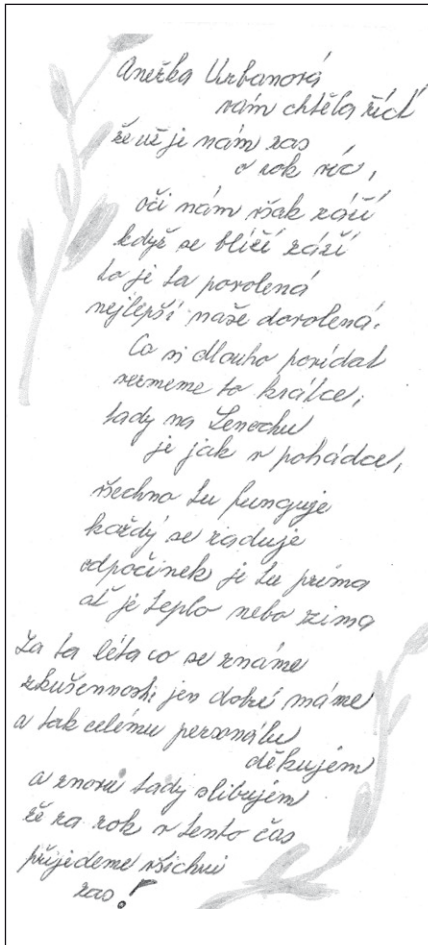 Anežka Urbanová
vám chtěla říct
že už je nám zas
o rok víc,
oči nám však září
když se blíží září
to je ta povolená
nejlepší naše dovolená.
Co si dlouho povídat
vezmeme to krátce,
tady na Lenochu
je jak v pohádce,
všechno tu funguje
každý se raduje
odpočinek je tu príma
ať je teplo nebo zima
Za ta léta co se známe
zkušennosti jen dobré máme
a tak celému personálu
děkujem
a znova tady slibujem
že za rok v tento čas
přijedeme všichni
zas!